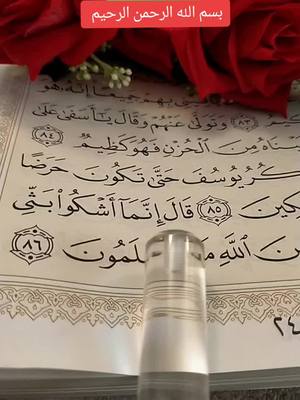 بسم الله الرحمن الرحيم
بِهِمْ جَمِيعًا إِنَّهُۥ هُوَ
٨٣ وَتَوَلَّىٰ عَنْهُمْ وَقَالَ يَٰٓأَسَفَىٰ عَلَىٰ
نَاهُ مِنَ ٱلْحُزْنِ فَهُوَ كَظِيمٌ ٨٤
كُرُ يُوسُفَ حَتَّىٰ تَكُونَ حَرَضًا
كِينَ ٨٥ قَالَ إِنَّمَآ أَشْكُوا۟ بَثِّى
نَ ٱللَّهِ مَ لَمُونَ ٨٦
٢٤